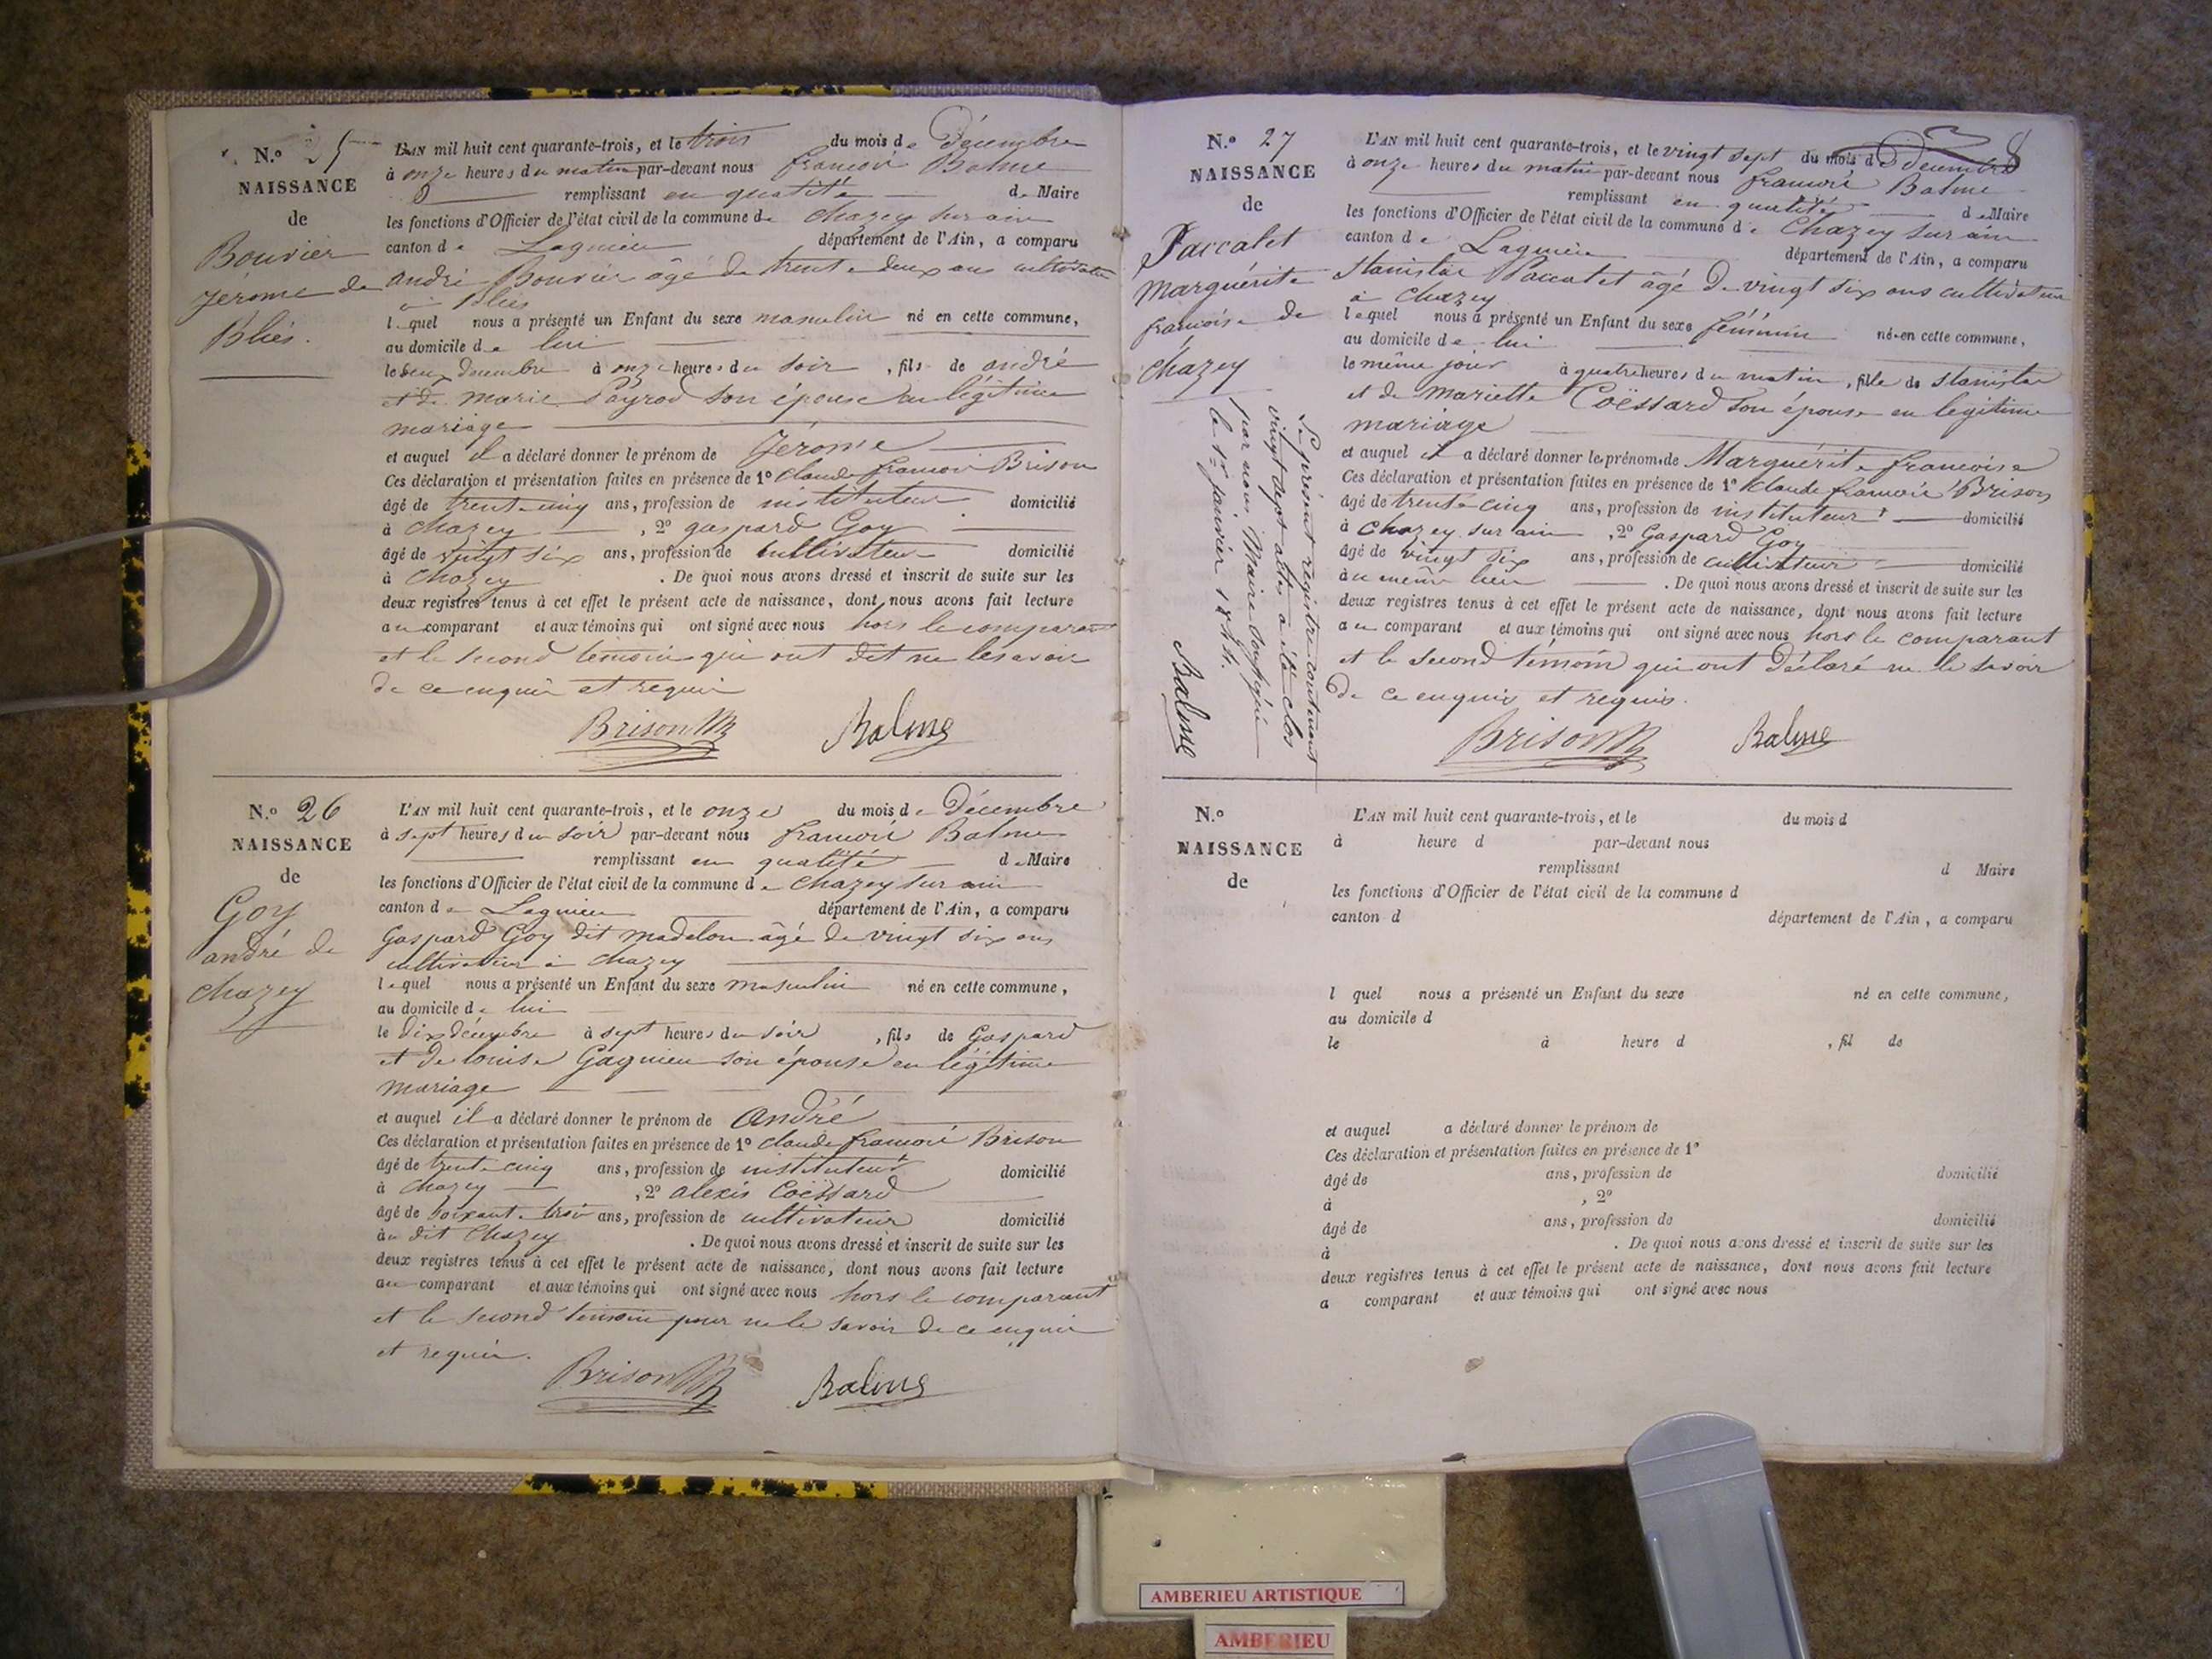 N.o 25
NAISSANCE
de
Bouvier
jérome de
Blies.
L'AN mil huit cent quarante-trois, et le trois du mois de Décembre
à onze heures du matin par-devant nous francois Balme
remplissant en qualité de Maire
les fonctions d'Officier de l'état civil de la commune de chazey sur ain
canton de Lagnieu département de l'Ain, a comparu
andré Bouvier âgé de trente deux ans cultivateur
à Blies
lequel nous a présenté un Enfant du sexe masculin né en cette commune,
au domicile de lui
le deux decembre à onze heures du soir, fils de andré
et de marie Payrod son épouse en légitime
mariage
et auquel il a déclaré donner le prénom de Jérome
Ces déclaration et présentation faites en présence de 1o Claude francois Brison
âgé de trente cinq ans, profession de instituteur domicilié
à chazey, 2o gaspard Goy
âgé de vingt six ans, profession de cultivateur domicilié
à chazey. De quoi nous avons dressé et inscrit de suite sur les
deux registres tenus à cet effet le présent acte de naissance, dont nous avons fait lecture
au comparant et aux témoins qui ont signé avec nous hors le comparant
et le second temoin qui ont dit ne le savoir
de ce enquis et requis
Brison Balme
N.o 26
NAISSANCE
de
Goy
andré de
chazey
L'AN mil huit cent quarante-trois, et le onze du mois de Décembre
à sept heures du soir par-devant nous francois Balme
remplissant en qualité de Maire
les fonctions d'Officier de l'état civil de la commune de chazey sur ain
canton de Lagnieu département de l'Ain, a comparu
Gaspard Goy dit madelon âgé de vingt six ans
cultivateur à chazey
lequel nous a présenté un Enfant du sexe masculin né en cette commune,
au domicile de lui
le dix décembre à sept heures du soir, fils de Gaspard
et de louise Gagnieu son épouse en légitime
mariage
et auquel il a déclaré donner le prénom de André
Ces déclaration et présentation faites en présence de 1o Claude francois Brison
âgé de trente cinq ans, profession de instituteur domicilié
à chazey, 2o alexis Coëssard
âgé de soixante trois ans, profession de cultivateur domicilié
au dit Chazey. De quoi nous avons dressé et inscrit de suite sur les
deux registres tenus à cet effet le présent acte de naissance, dont nous avons fait lecture
au comparant et aux témoins qui ont signé avec nous hors le comparant
et le second temoin pour ne le savoir de ce enquis
et requis.
Brison Balme
8
N.o 27
NAISSANCE
de
Paccalet
Marguérite
francoise de
Chazey
Le présent registre contenant
vingt sept actes a été clos
par nous Maire soussigné
le 1er janvier 1844.
Balme
L'AN mil huit cent quarante-trois, et le vingt sept du mois de Décembre
à onze heures du matin par-devant nous francois Balme
remplissant en qualité de Maire
les fonctions d'Officier de l'état civil de la commune de Chazey sur ain
canton de Lagnieu département de l'Ain, a comparu
Stanislas Paccalet âgé de vingt six ans cultivateur
à Chazey
lequel nous a présenté un Enfant du sexe féminin né-en cette commune,
au domicile de lui
le même jour à quatre heures du matin, fille de Stanislas
et de Mariette Coëssard son épouse en légitime
mariage
et auquel il a déclaré donner le prénom de Marguérite francoise
Ces déclaration et présentation faites en présence de 1o Claude francois Brison
âgé de trente cinq ans, profession de instituteur domicilié
à Chazey sur ain, 2o Gaspard Goy
âgé de vingt six ans, profession de cultivateur domicilié
au même lieu. De quoi nous avons dressé et inscrit de suite sur les
deux registres tenus à cet effet le présent acte de naissance, dont nous avons fait lecture
au comparant et aux témoins qui ont signé avec nous hors le comparant
et le second témoin qui ont déclaré ne le savoir
de ce enquis et requis.
Brison Balme
N.o
NAISSANCE
de
L'AN mil huit cent quarante-trois, et le du mois d
à heure d par-devant nous
remplissant d Maire
les fonctions d'Officier de l'état civil de la commune d
canton d département de l'Ain, a comparu
l quel nous a présenté un Enfant du sexe né en cette commune,
au domicile d
le à heure d , fil de
et auquel a déclaré donner le prénom de
Ces déclaration et présentation faites en présence de 1o
âgé de ans, profession de domicilié
à , 2o
âgé de ans, profession de domicilié
à . De quoi nous avons dressé et inscrit de suite sur les
deux registres tenus à cet effet le présent acte de naissance, dont nous avons fait lecture
a comparant et aux témoins qui ont signé avec nous
AMBERIEU ARTISTIQUE
AMBERIEU